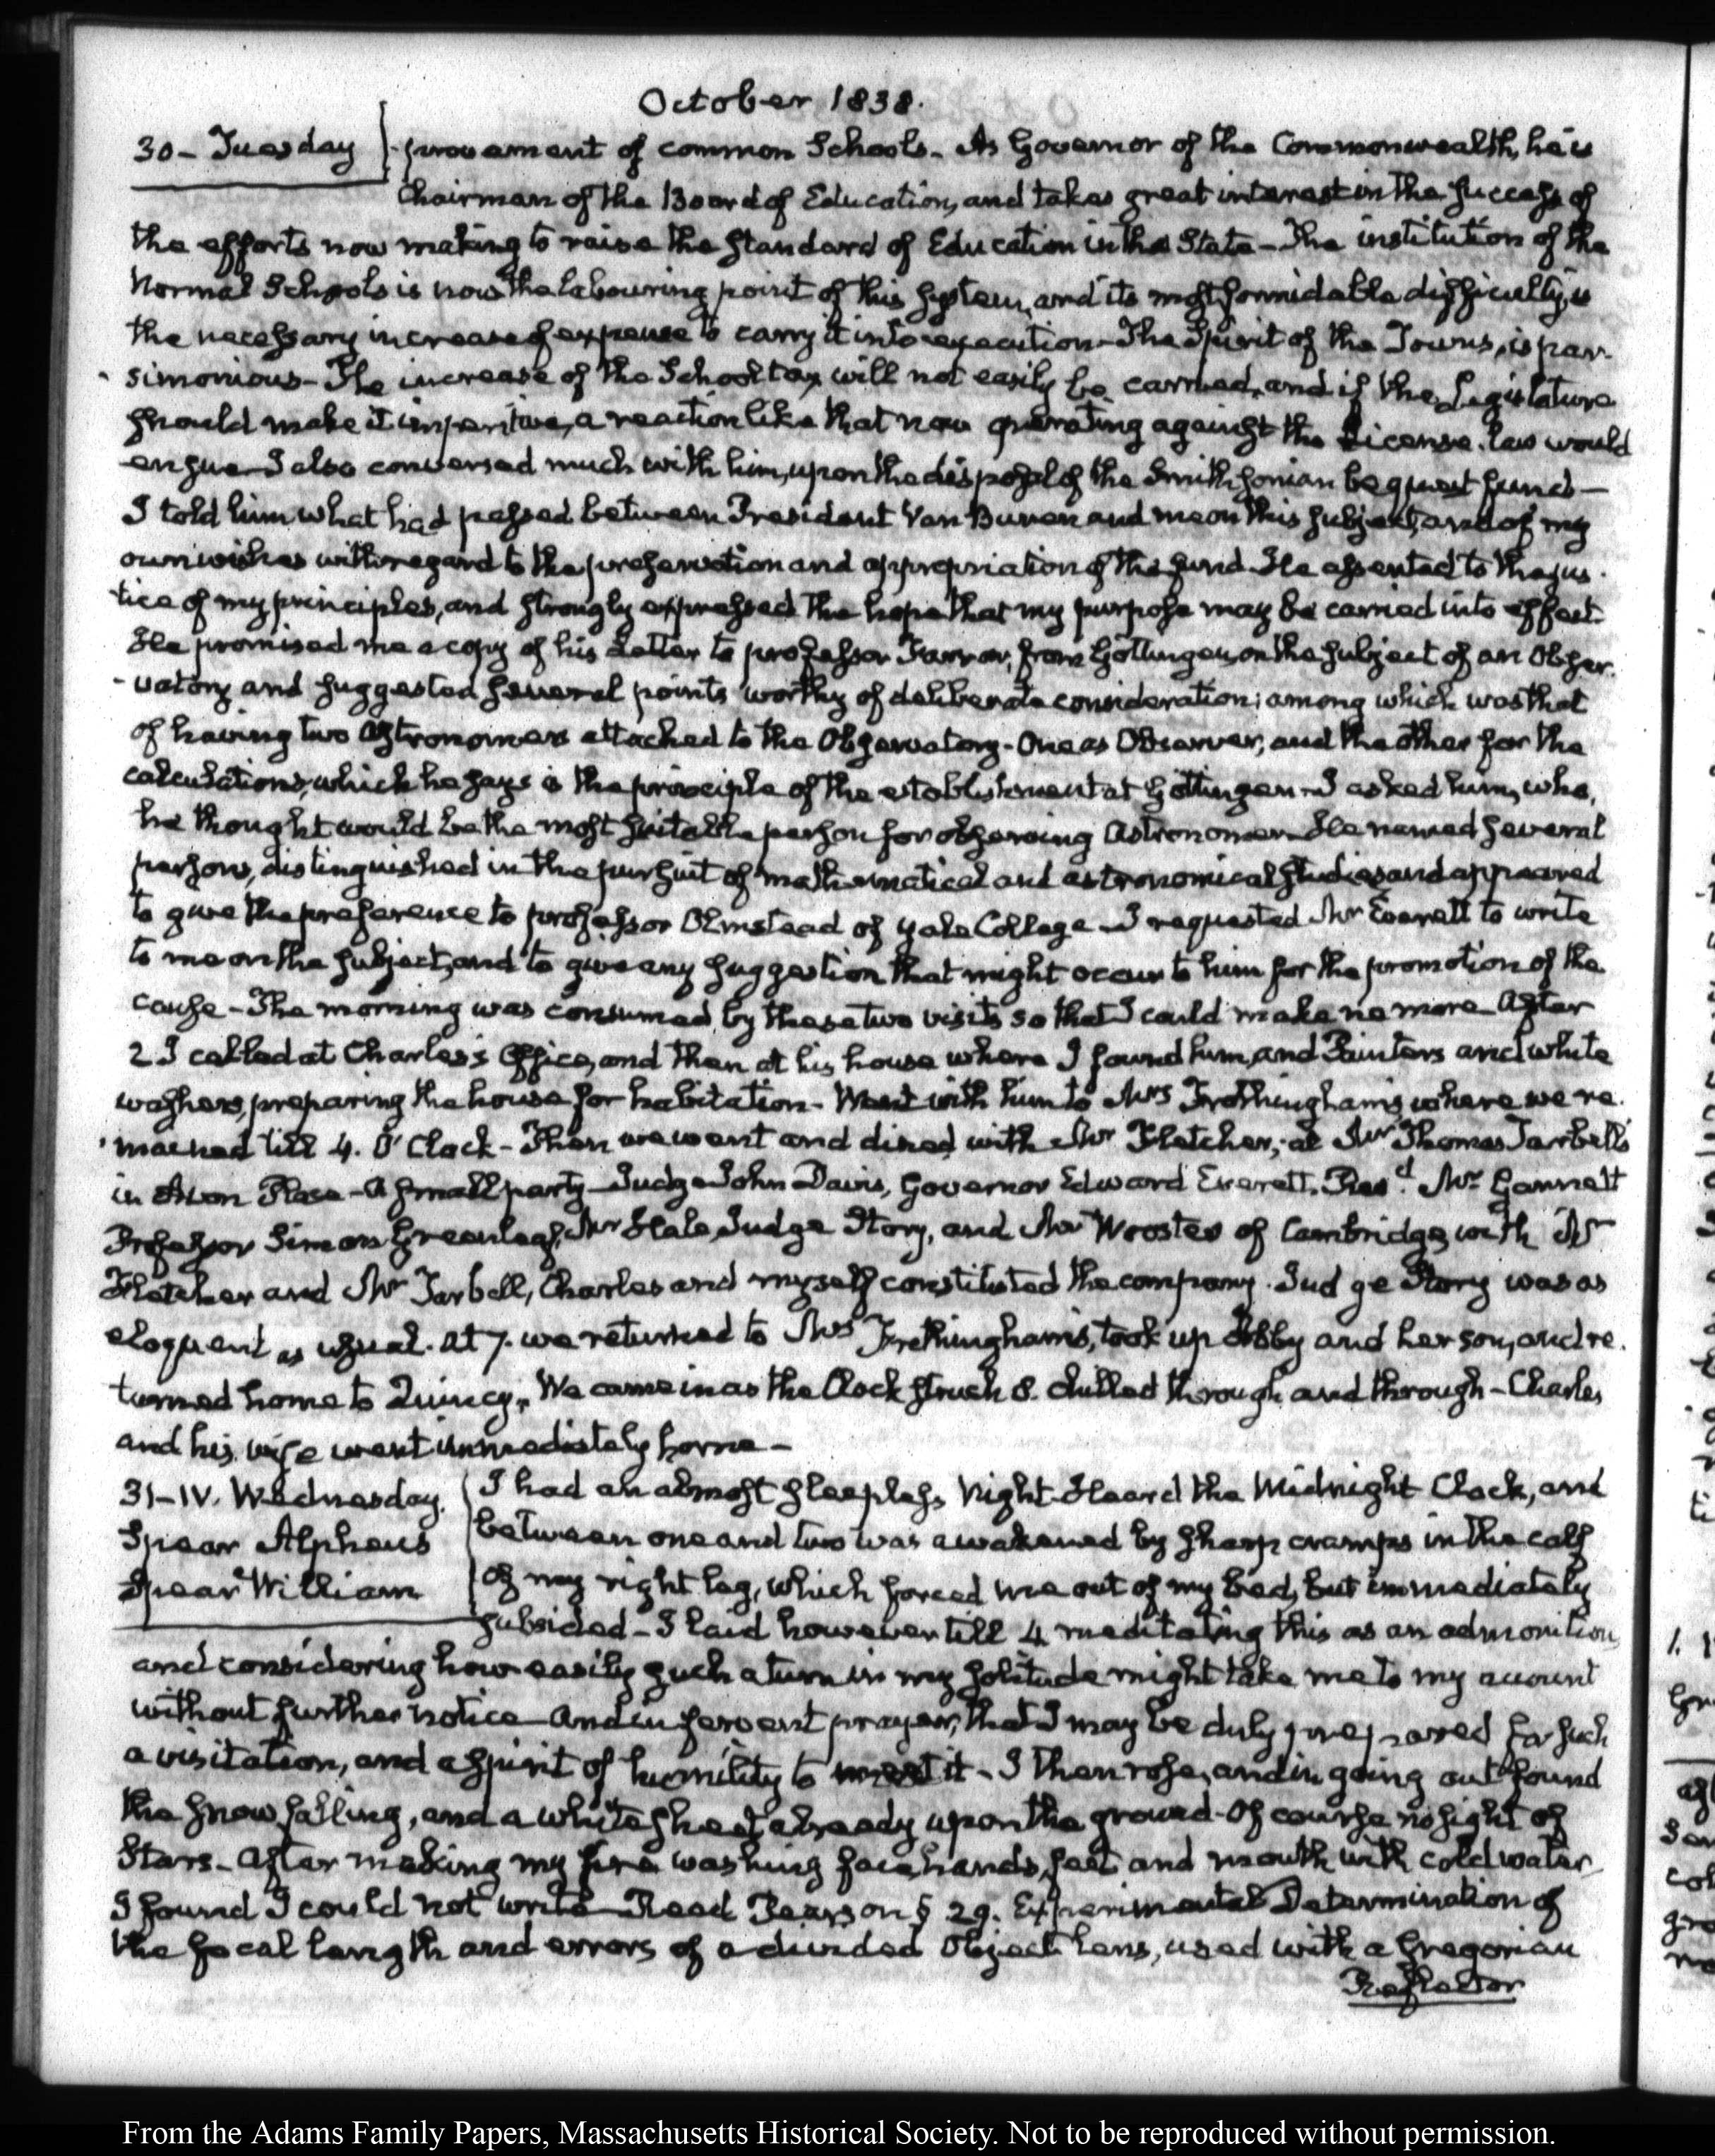 October 1838.
30 - Tuesday
-provement of common Schools - As Governor of the Commonwealth, he is
Chairman of the Board of Education, and takes great interest in the success of
the efforts now making to raise the standard of Education in the State - The institution of the
Normal Schools is now the labouring point of this system, and its most formidable difficulty, is
the necessary increase of expense to carry it into execution - The Spirit of the Towns, is par-
simonious - The increase of the School tax will not easily be carried, and if the Legislature
should make it imperitive, a reaction like that now operating against the License law would
ensue - I also conversed much with him, upon the disposal of the Smithsonian bequest fund -
I told him what had passed between President Van Buren and me on this subject, and of my
own wishes with regard to the preservation and appropriation of the fund - He assented to the jus-
tice of my principles, and strongly expressed the hope that my purpose may be carried into effect -
He promised me a copy of his Letter to professor Farrar, from Göttingen, on the subject of an Obser-
-vatory and suggested several points worthy of deliberate consideration; among which was that
of having two Astronomers attached to the Observatory - One as Observer, and the other for the
calculations, which he says is the principle of the establishment at Göttingen - I asked him, who,
he thought would be the most suitable person for observing Astronomer - He named several
persons, distinguished in the pursuit of mathematical and astronomical studies and appeared
to give the preference to professor Olmstead of Yale College - I requested Mr Everett to write
to me on the subject, and to give any suggestion that might occur to him for the promotion of the
cause - The morning was consumed by these two visits so that I could make no more - After
2 I called at Charles's Office, and then at his house where I found him, and Painters and white
washers, preparing the house for habitation - Went with him to Mrs Frothingham's, where we re-
-mained till 4. O'Clock - Then we went and dined with Mr Fletcher; at Mr Thomas Tarbell's
in Avon Place - A small party - Judge John Davis, Governor Edward Everett, Revd. Mr Gannett
Professor Simon Greenleaf, Mr Hale, Judge Story, and Mr Wooster of Cambridge, with Mr
Fletcher and Mr Tarbell, Charles and myself constituted the company. Judge Story was as
eloquent as usual. At 7. we returned to Mrs Frothingham's, took up Abby and her son, and re-
turned home to Quincy. We came in as the Clock struck 8. chilled through and through - Charles
and his wife went immediately home -
31 - IV. Wednesday.
Spear Alpheus
Spear William
I had an almost sleepless Night - Heard the Midnight Clock, and
between one and two was awakened by sharp cramps in the calf
of my right leg, which forced me out of my bed, but immediately
subsided - I laid however till 4 meditating this as an admonition,
and considering how easily such a turn in my solitude might take me to my account
without further notice - And in fervent prayer, that I may be duly prepared for such
a visitation, and a spirit of humility to meet it - I then rose, and in going out found
the snow falling, and a white sheet already upon the ground - Of course no sight of
Stars - After making my fire washing face, hands, feet and mouth with cold water
I found I could not write - Read Pearson § 29. Experimental Determination of
the focal length and errors of a divided Object lens, used with a Gregorian
Reflector
From the Adams Family Papers, Massachusetts Historical Society. Not to be reproduced without permission.